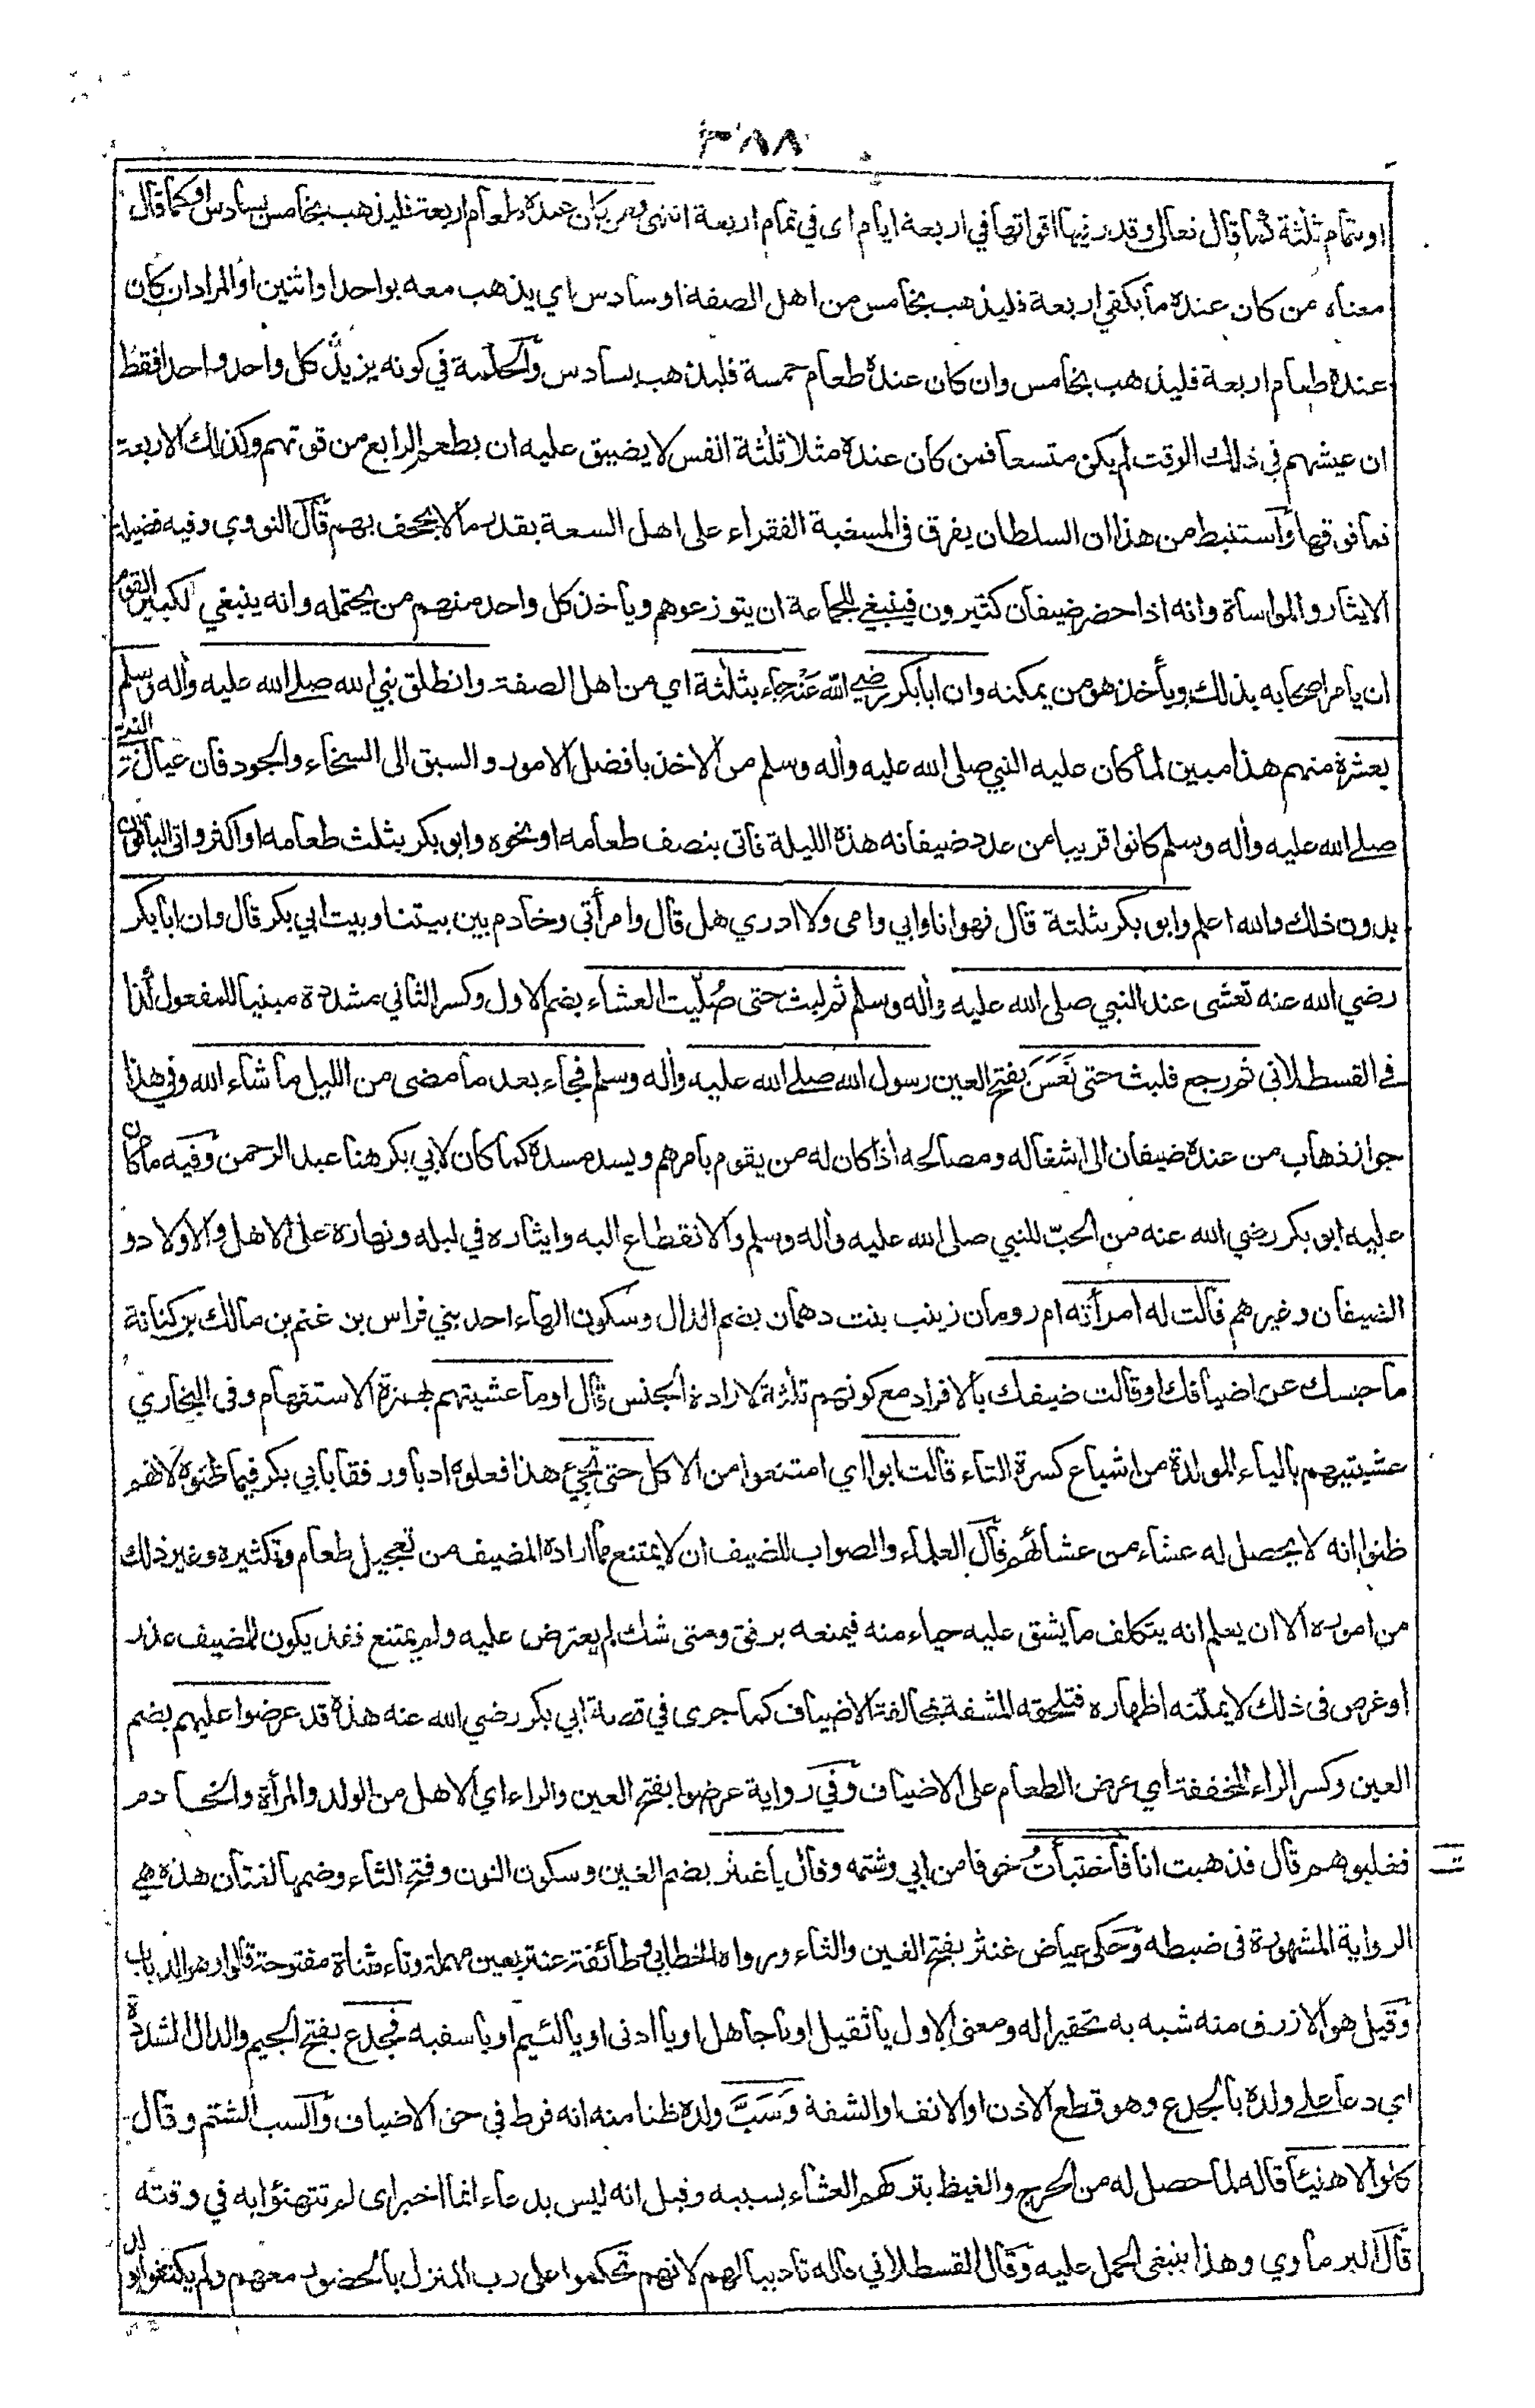 ٣٨٨
او بتمام ثلثة كما قال تعالى وقدر فيها اقواتها في اربعة ايام اى في تمام اربعة انتهى ومن كان عنده طعام اربعة فليذهب بخامس بسادس او كما قال
معناه من كان عنده ما يكفي اربعة فليذهب بخامس من اهل الصفة او سادس اي يذهب معه بواحد او اثنين او المراد ان كان
عنده طعام اربعة فليذهب بخامس وان كان عنده طعام خمسة فليذهب بسادس والحكمة في كونه يزيد كل واحد واحدا فقط
ان عيشهم في ذلك الوقت لم يكن متسعا فمن كان عنده مثلا ثلثة انفس لا يضيق عليه ان يطعم الرابع من قوتهم وكذلك الاربعة
فما فوقها واستنبط من هذا ان السلطان يفرق في المسغبة الفقراء على اهل السعة بقدر ما لا يجحف بهم قال النووي وفيه فضيلة
الايثار والمواساة وانه اذا حضر ضيفان كثيرون فينبغي للجماعة ان يتوزعوهم ويأخذ كل واحد منهم من يحتمله وانه ينبغي لكبير القوم
ان يأمر اصحابه بذلك ويأخذ هو من يمكنه وان ابا بكر رضي الله عنه جاء بثلثة اي من اهل الصفة وانطلق نبي الله صلى الله عليه وأله وسلم
بعشرة منهم هذا مبين لما كان عليه النبي صلى الله عليه وأله وسلم من الاخذ بافضل الامور والسبق الى السخاء والجود فان عيال النبي
صلى الله عليه وأله وسلم كانوا قريبا من عدد ضيفانه هذه الليلة فاتى بنصف طعامه او نحوه وابو بكر بثلث طعامه او اكثر واتى الباقون
بدون ذلك والله اعلم وابو بكر بثلثة قال فهو انا وابي وامى ولا ادري هل قال وامرأتي وخادم بين بيتنا وبيت ابي بكر قال وان ابا بكر
رضي الله عنه تعشى عند النبي صلى الله عليه وأله وسلم ثم لبث حتى صُلّيت العشاء بضم الاول وكسر الثاني مشددة مبنيا للمفعول كذا
في القسطلاني ثم رجع فلبث حتى نَعَسَ بفتح العين رسول الله صلى الله عليه وأله وسلم فجاء بعد ما مضى من الليل ما شاء الله وفي هذا
جواز ذهاب من عنده ضيفان الى اشغاله ومصالحه اذا كان له من يقوم بامرهم ويسد مسده كما كان لابي بكر هنا عبد الرحمن وفيه ما كان
عليه ابو بكر رضي الله عنه من الحبّ للنبي صلى الله عليه وأله وسلم والانقطاع اليه وايثاره في ليله ونهاره على الاهل والاولاد و
الضيفان وغيرهم قالت له امرأته ام رومان زينب بنت دهمان بضم الدال وسكون الهاء احد بني فراس بن غنم بن مالك بن كنانة
ما حبسك عن اضيافك او قالت ضيفك بالافراد مع كونهم ثلثة لارادة الجنس قال او ما عشيتهم بهمزة الاستفهام وفى البخاري
عشيتيهم بالياء المولدة من اشباع كسرة التاء قالت ابوا اي امتنعوا من الاكل حتى تجيء هذا فعلوه ادبا ورفقا بابي بكر فيما ظنوه لانهم
ظنوا انه لا يحصل له عشاء من عشائهم قال العلماء والصواب للضيف ان لا يمتنع مما اراده المضيف من تعجيل طعام وتكثيره وغير ذلك
من اموره الا ان يعلم انه يتكلف ما يشق عليه حياء منه فيمنعه برفق ومتى شك لم يعترض عليه ولم يمتنع فقد يكون للمضيف عذر
او غرض فى ذلك لا يمكنه اظهاره فتلحقه المشقة بمخالفة الاضياف كما جرى في قصة ابي بكر رضي الله عنه هذه قد عرضوا عليهم بضم
العين وكسر الراء المخففة اي عرض الطعام على الاضياف وفي رواية عرضوا بفتح العين والراء اي الاهل من الولد والمرأة والخادم
فغلبوهم قال فذهبت انا فاختبأتُ خوفا من ابي وشتمه وقال يا غنثر بضم الغين وسكون النون وفتح الثاء وضمها لغتان هذه هي
الرواية المشهورة فى ضبطه وحكى عياض غنثر بفتح الغين والثاء ورواه الخطابي وطائفة عنتر بعين مهملة وتاء مثناة مفتوحة قالوا وهو الذباب
وقيل هو الازرق منه شبه به تحقيرا له ومعنى الاول يا ثقيل او يا جاهل او يا ادنى او يا لئيم او يا سفيه فجدع بفتح الجيم والدال المشددة
اي دعا على ولده بالجدع وهو قطع الاذن او الانف او الشفة وَسَبَّ ولده ظنا منه انه فرط في حق الاضياف والسب الشتم وقال
كلوا لا هنيئا قاله لما حصل له من الحرج والغيظ بتركهم العشاء بسببه وقيل انه ليس بدعاء انما اخبر اى لم تتهنؤا به في وقته
قال البرماوي وهذا ينبغى الحمل عليه وقال القسطلاني قاله تأديبا لهم لانهم تحكموا على رب المنزل بالحضور معهم ولم يكتفوا بولده